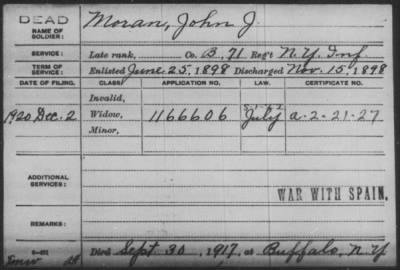 DEAD
NAME OF SOLDIER: Moran, John J.
SERVICE: Late rank, Co. B, 71 Reg't N.Y. Inf.
TERM OF SERVICE: Enlisted June 25, 1898 Discharged Nov. 15, 1898
DATE OF FILING. CLASS. APPLICATION NO. LAW. CERTIFICATE NO.
Invalid,
1920 Dec. 2 Widow, 1166606 July a-2-21-27
Minor,
ADDITIONAL SERVICES:
WAR WITH SPAIN.
REMARKS:
Died Sept 30, 1917, at Buffalo, N.Y.